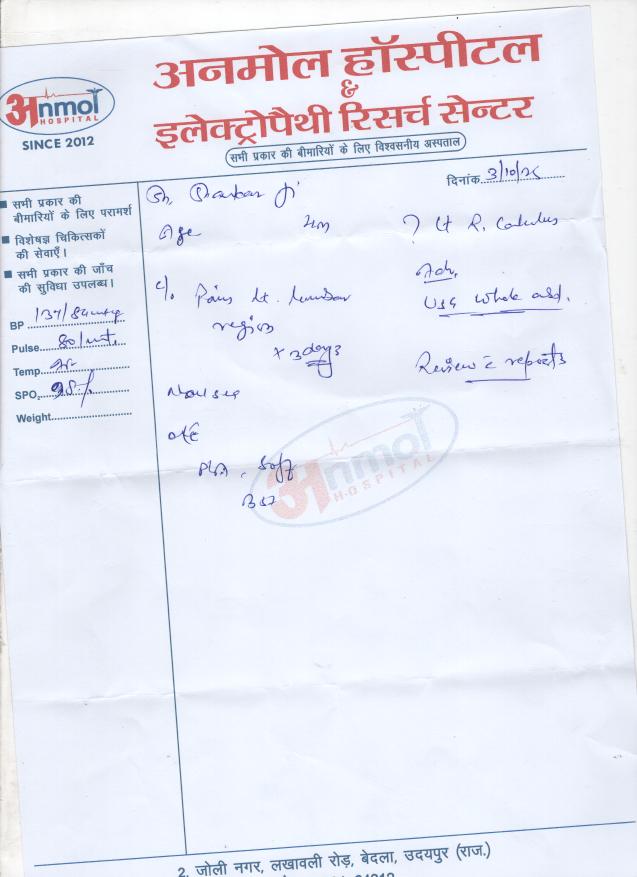 अनमोल हॉस्पीटल
&
इलेक्ट्रोपैथी रिसर्च सेन्टर
सभी प्रकार की बीमारियों के लिए विश्वसनीय अस्पताल
अnmol
HOSPITAL
SINCE 2012
दिनांक 3/10/25
सभी प्रकार की
बीमारियों के लिए परामर्श
विशेषज्ञ चिकित्सकों
की सेवाएँ।
सभी प्रकार की जाँच
की सुविधा उपलब्ध।
BP 137/84
Pulse 80/mt.
Temp
SPO2 98%
Weight
Sh. Ji
Age
? Lt R. Calculus
c/o Pain Lt. lumbar
region
x 3 days
Nausea
O/E
P/A. Soft
Adv.
USG whole abd.
Review c reports
अnmol
HOSPITAL
2, जोली नगर, लखावली रोड़, बेदला, उदयपुर (राज.)